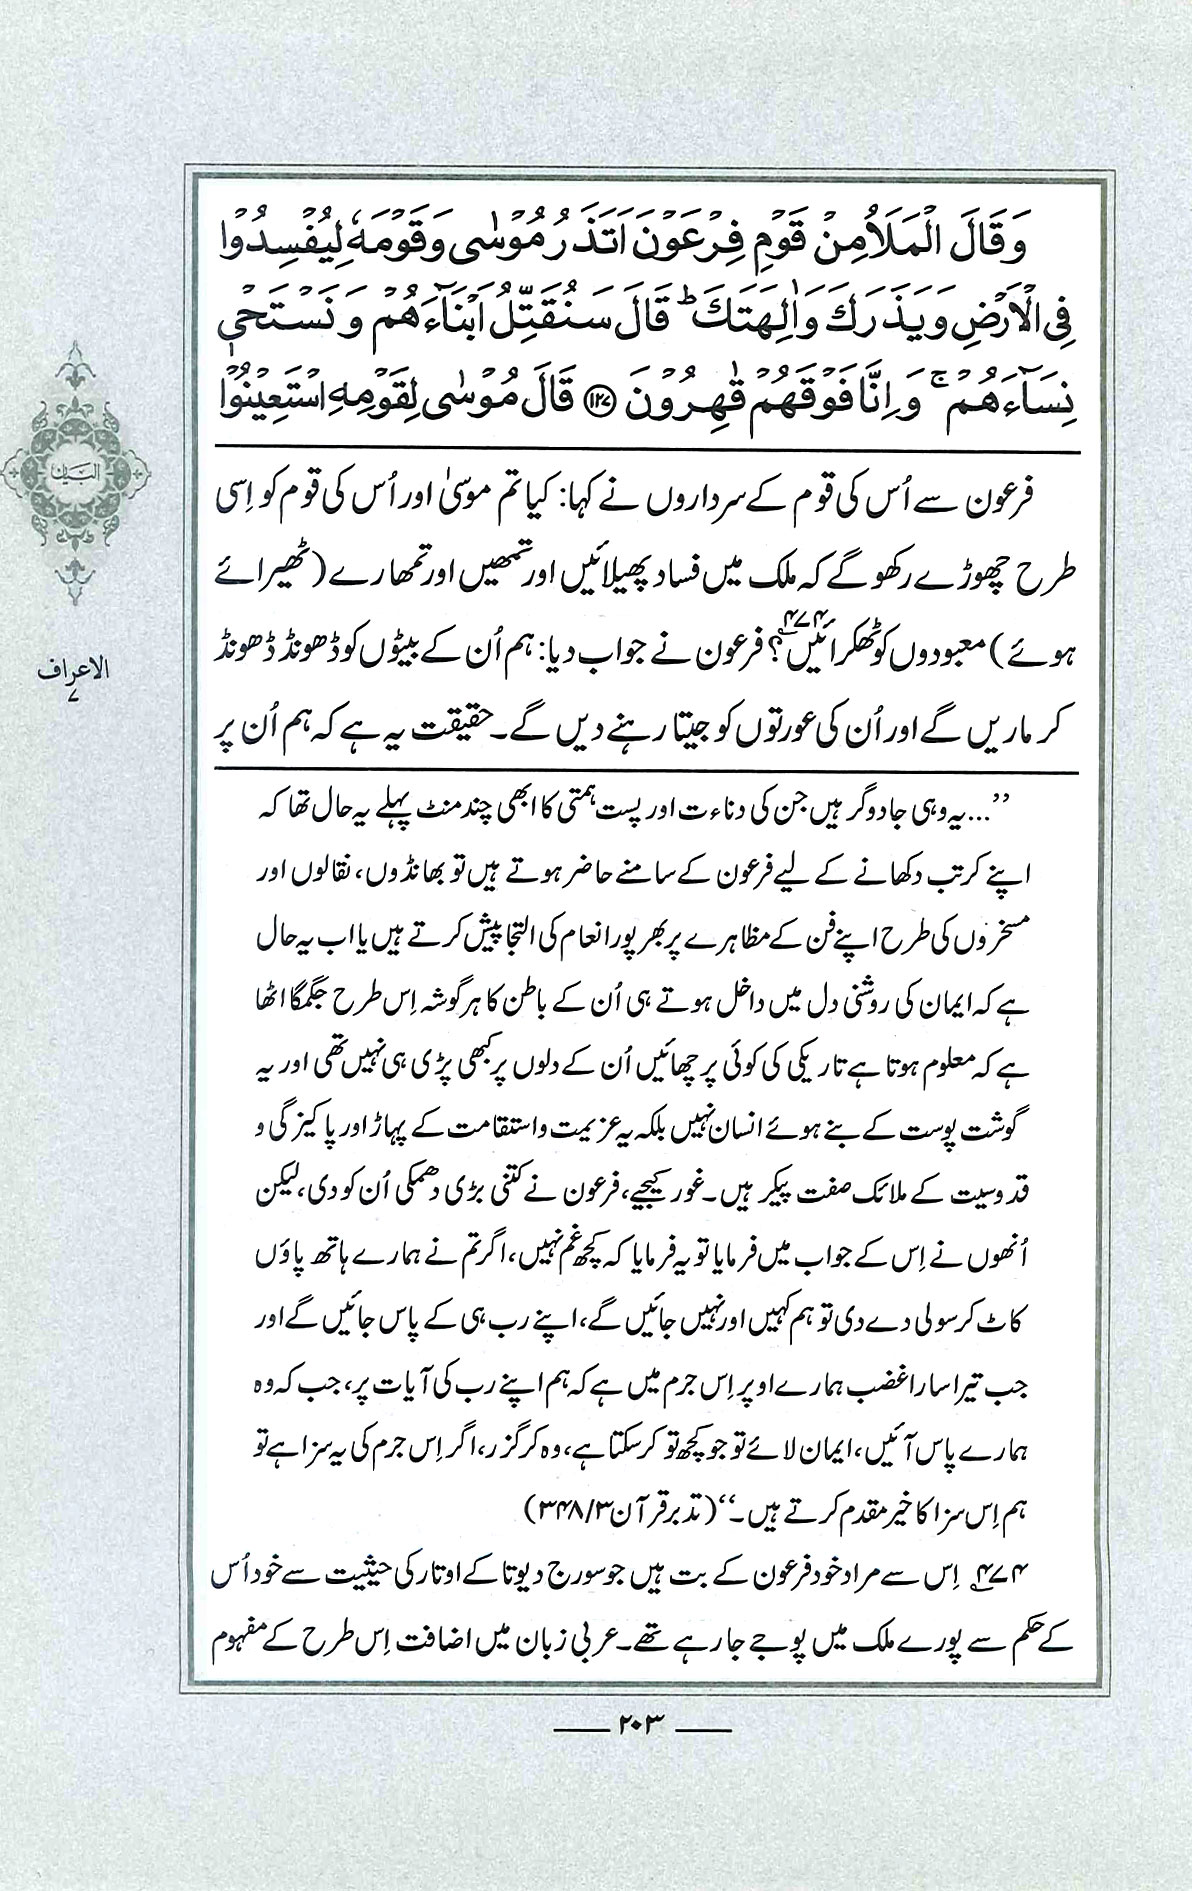 وَقَالَ الْمَلَاُ مِنْ قَوْمِ فِرْعَوْنَ اَتَذَرُ مُوْسٰى وَقَوْمَهٗ لِيُفْسِدُوْا
فِى الْاَرْضِ وَيَذَرَكَ وَاٰلِهَتَكَ ؕ قَالَ سَنُقَتِّلُ اَبْنَآءَهُمْ وَنَسْتَحْىٖ
نِسَآءَهُمْ ۚ وَاِنَّا فَوْقَهُمْ قٰهِرُوْنَ ﴿۱۲۷﴾ قَالَ مُوْسٰى لِقَوْمِهِ اسْتَعِيْنُوْا
فرعون سے اُس کی قوم کے سرداروں نے کہا: کیا تم موسیٰ اور اُس کی قوم کو اِسی
طرح چھوڑے رکھو گے کہ ملک میں فساد پھیلائیں اور تمھیں اور تمھارے (ٹھیرائے
ہوئے) معبودوں کو ٹھکرائیں۴۷۴؟ فرعون نے جواب دیا: ہم اُن کے بیٹوں کو ڈھونڈ ڈھونڈ
کر ماریں گے اور اُن کی عورتوں کو جیتا رہنے دیں گے۔ حقیقت یہ ہے کہ ہم اُن پر
’’...یہ وہی جادوگر ہیں جن کی دناءت اور پست ہمتی کا ابھی چند منٹ پہلے یہ حال تھا کہ
اپنے کرتب دکھانے کے لیے فرعون کے سامنے حاضر ہوتے ہیں تو بھانڈوں، نقالوں اور
مسخروں کی طرح اپنے فن کے مظاہرے پر بھرپور انعام کی التجا پیش کرتے ہیں یا اب یہ حال
ہے کہ ایمان کی روشنی دل میں داخل ہوتے ہی اُن کے باطن کا ہر گوشہ اِس طرح جگمگا اٹھا
ہے کہ معلوم ہوتا ہے تاریکی کی کوئی پرچھائیں اُن کے دلوں پر کبھی پڑی ہی نہیں تھی اور یہ
گوشت پوست کے بنے ہوئے انسان نہیں بلکہ یہ عزیمت و استقامت کے پہاڑ اور پاکیزگی و
قدوسیت کے ملائک صفت پیکر ہیں۔ غور کیجیے، فرعون نے کتنی بڑی دھمکی اُن کو دی، لیکن
اُنھوں نے اِس کے جواب میں فرمایا تو یہ فرمایا کہ کچھ غم نہیں، اگر تم نے ہمارے ہاتھ پاؤں
کاٹ کر سولی دے دی تو ہم کہیں اور نہیں جائیں گے، اپنے رب ہی کے پاس جائیں گے اور
جب تیرا سارا غضب ہمارے اوپر اِس جرم میں ہے کہ ہم اپنے رب کی آیات پر، جب کہ وہ
ہمارے پاس آئیں، ایمان لائے تو جو کچھ تو کر سکتا ہے، وہ کر گزر، اگر اِس جرم کی یہ سزا ہے تو
ہم اِس سزا کا خیر مقدم کرتے ہیں۔‘‘ (تدبر قرآن ۳/۳۴۸)
۴۷۴ اِس سے مراد خود فرعون کے بت ہیں جو سورج دیوتا کے اوتار کی حیثیت سے خود اُس
کے حکم سے پورے ملک میں پوجے جا رہے تھے۔ عربی زبان میں اضافت اِس طرح کے مفہوم
البیان
الاعراف
۷
۲۰۳